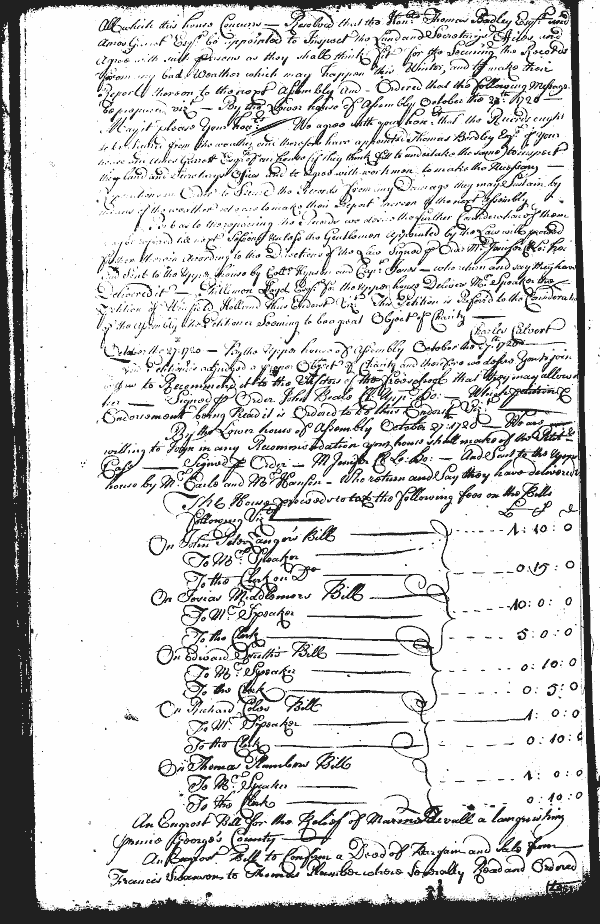 All which this house Concurrs — Resolved that the Hon.ble Thomas Bordley Esq.r and
Amos Garrat Esq.r be appointed to Inspect the Land and Secretarys Offices and
Agree with such persons as they shall think fit for the Securing the Records
from any bad Weather which may happen this Winter, and to make their
Report thereon to the next Assembly And — Ordered that the following Message
be prepared viz.t — By the Lower house of Assembly October the 1720
May it please Your hon.rs We agree with your hon.rs that the Records ought
to be from the weather and therefore have appointed Thomas Bordley Esq.r of your
house and Amos Garrett Esq.r of our house (if they think fit to undertake the same) to inspect
the Land and Secretarys Offices and to agree with workmen to make the Necessary
in Order to Secure the Records from any Damage they may Sustain by
means of the weather and to make their Report thereon to the next Assembly
As to the repairing the we desire the further Consideration of them
may be till next Sessions the Gentlemen Appointed by the Law will proceed
therein According to the Directions of the Law Signed p Order M.r Jenifer Cl. Lo. ho.
And Sent to the Upper house by Coll.o Hynson and Cap.t Jones — who return and say they have
Delivered it — Philemon Lloyd Esq.r from the Upper house Delivers M.r Speaker the
Petition of Holland thus Endorst Viz.t This Petition is Referred to the Consideration
of the Assembly, the Petitioner Seeming to be a great Object of Charity
Charles Calvert
October the 27: 1720 — By the Upper house of Assembly October the 27.th 1720
This Petitioner is adjudged a proper Object of Charity and therefore we desire Yours to join
with us to Recommend it to the Visitors of the freeschool that they may allow
her — Signed p Order John Beale Cl. Upp.r Ho: — Which petition &
Endorsement being Read it is Ordered to be thus Endorst Viz.t
By the Lower house of Assembly October 27: 1720 — We are
willing to Joyn in any Recommendation your house shall make of the Pet.rs
Case — Signed p Order — M Jenifer Cl Lo. Ho: — And Sent to the Upper
house by M.r Earle and M.r Hanson — who return and Say they have delivered it
The House proceeds to tax the following fees on the Bills
following Viz.t £ S d
On John Peter Zenger's Bill
To M.r Speaker 1: 10: 0
To the Clerk on D.o 0: 15: 0
On Josias Middlemors Bill
To M.r Speaker 10: 0: 0
To the Clerk 5: 0: 0
On Edward Bill
To M.r Speaker 0: 10: 0
To the Clerk 0: 5: 0
On Richard Coles Bill
To M.r Speaker 1: 0: 0
To the Clerk 0: 10: 0
On Thomas Plumbers Bill
To M.r Speaker 1: 0: 0
To the Clerk 0: 10: 0
An Engrost Bill for the Relief of Marien Devall a languishing
Prince George's County
An Engrost Bill to Confirm a Deed of Bargain and Sale from
Francis Swanson to Thomas Plumber where Severally Read and Ordered